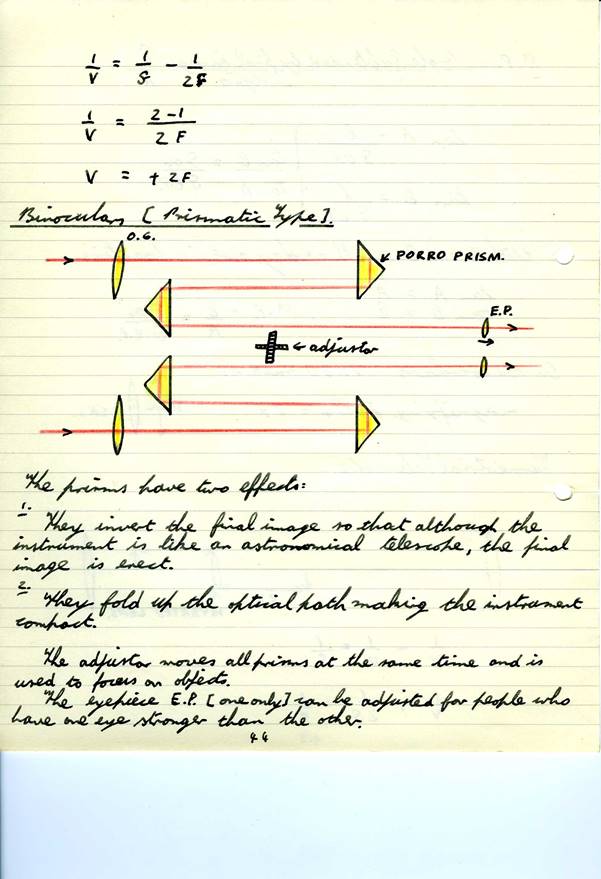 1/V = 1/F - 1/2F
1/V = 2-1/2F
V = +2F
Binoculars [Prismatic Type].
O.G.
PORRO PRISM.
E.P.
← adjustor
The prisms have two effects:
1.
They invert the final image so that although the
instrument is like an astronomical telescope, the final
image is erect.
2.
They fold up the optical path making the instrument
compact.
The adjustor moves all prisms at the same time and is
used to focus on objects.
The eyepiece E.P. [one only] can be adjusted for people who
have one eye stronger than the other.